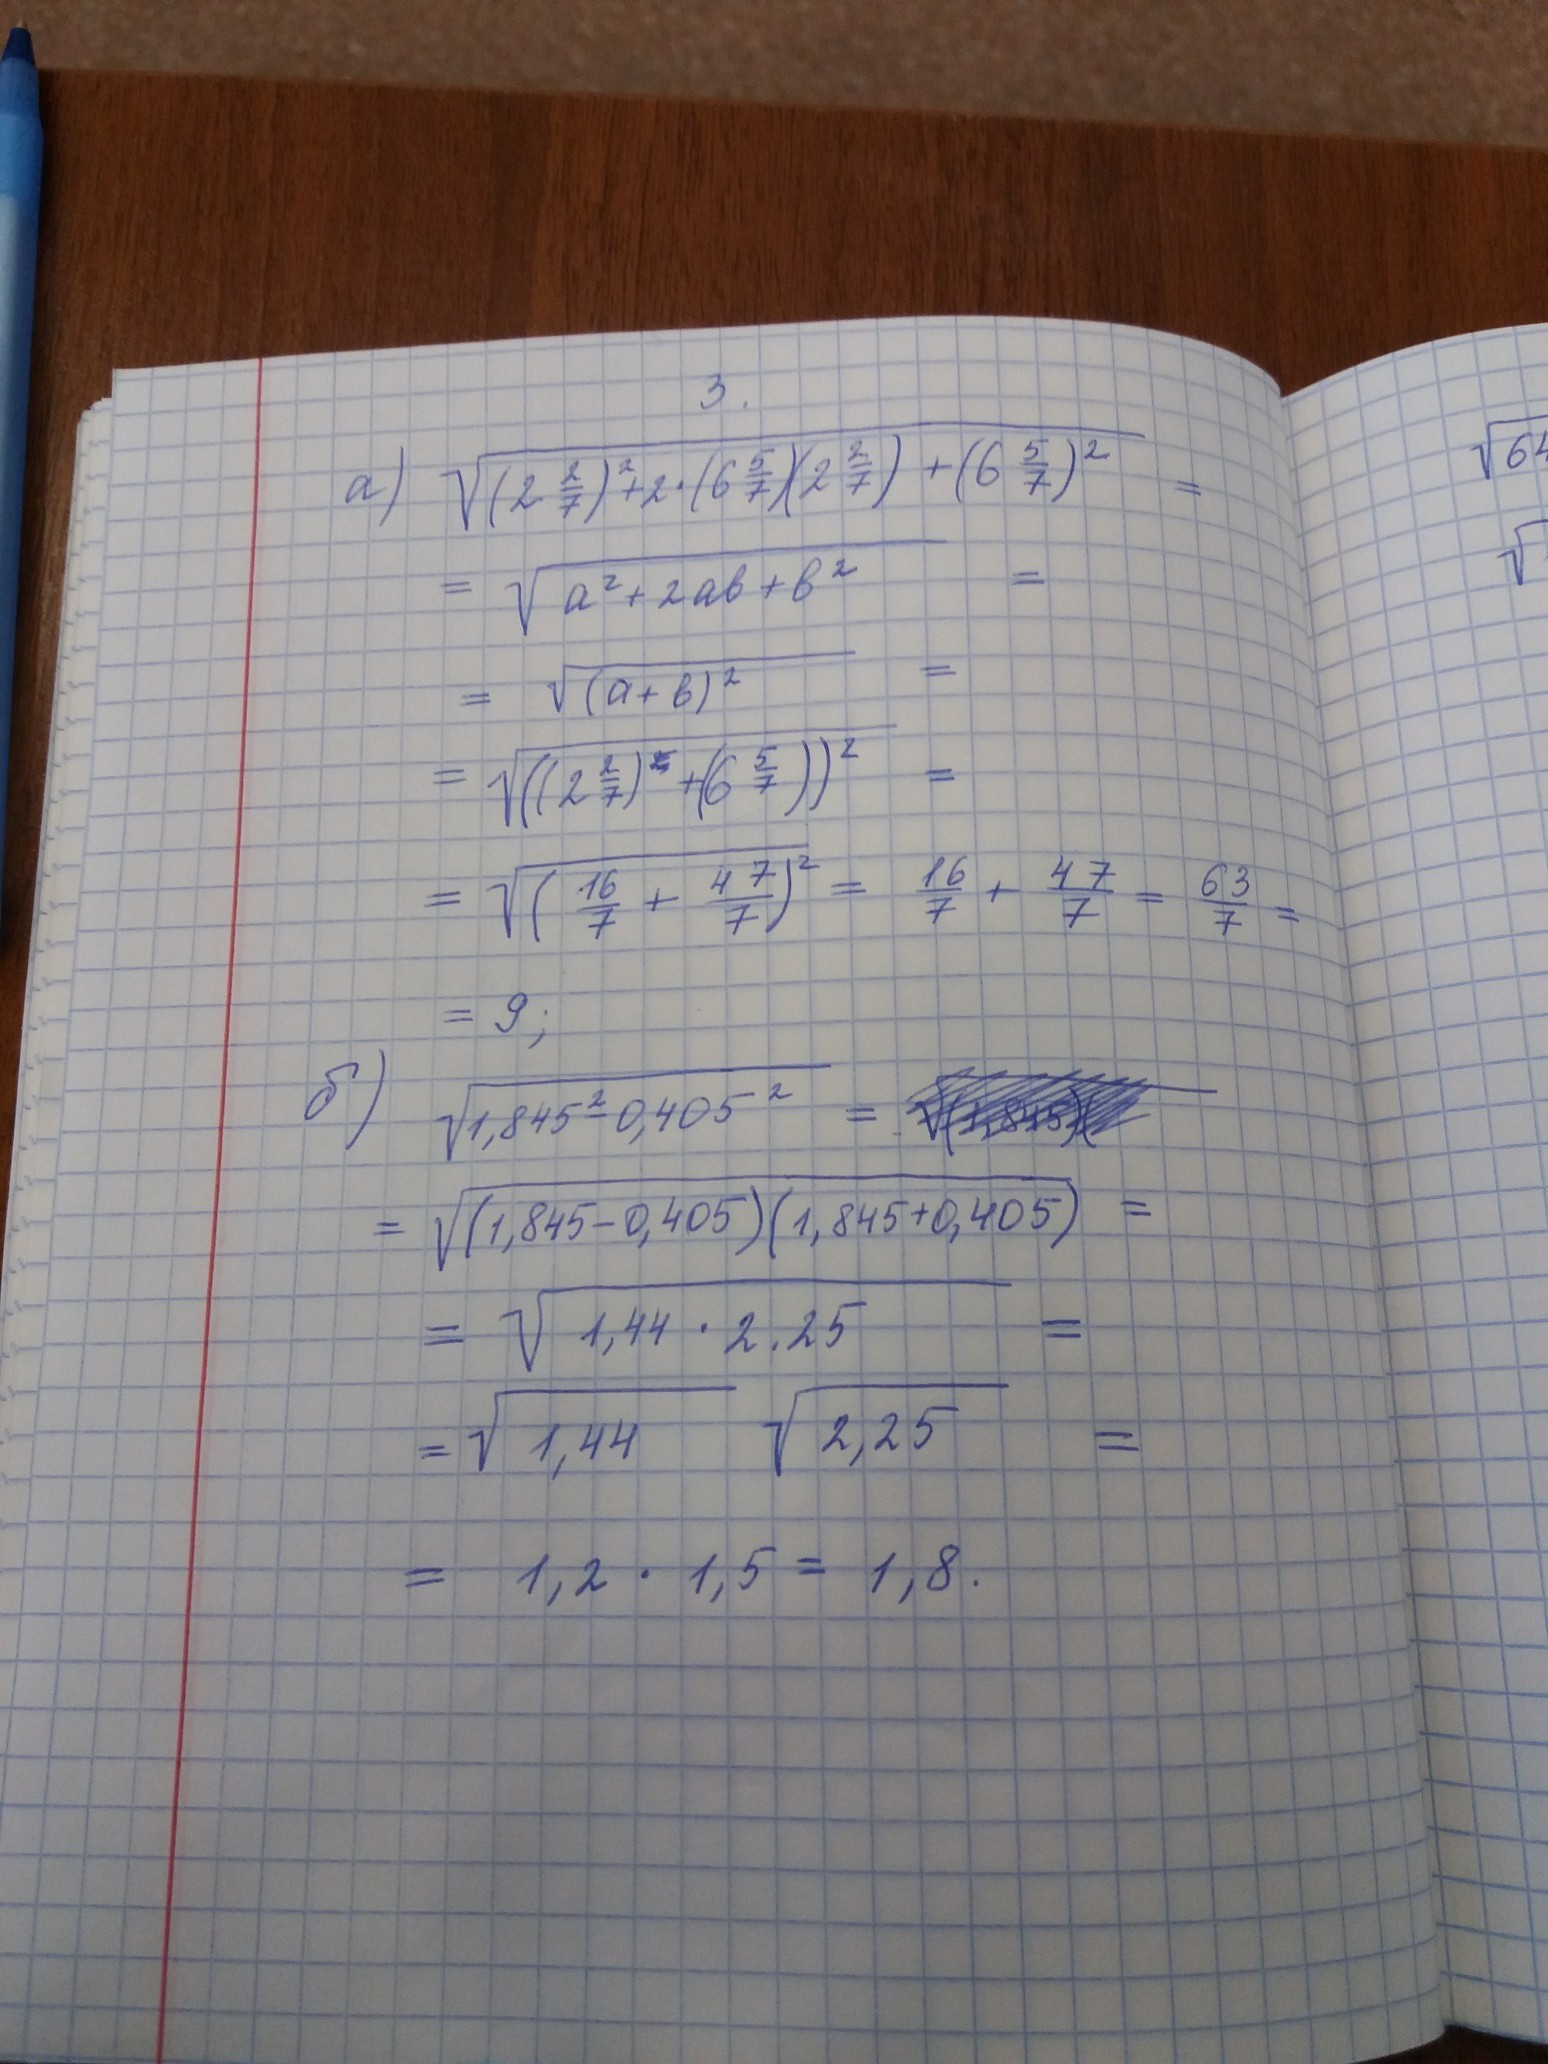 3.
а) √((2 2/7)²+2·(6 5/7)(2 2/7)+(6 5/7)²) =
= √(a²+2ab+b²) =
= √(a+b)² =
= √((2 2/7)+(6 5/7))² =
= √(16/7 + 47/7)² = 16/7 + 47/7 = 63/7 =
= 9;
б) √(1,845²-0,405²) =
= √((1,845-0,405)(1,845+0,405)) =
= √(1,44 · 2.25) =
= √1,44 √2,25 =
= 1,2 · 1,5 = 1,8.
√64